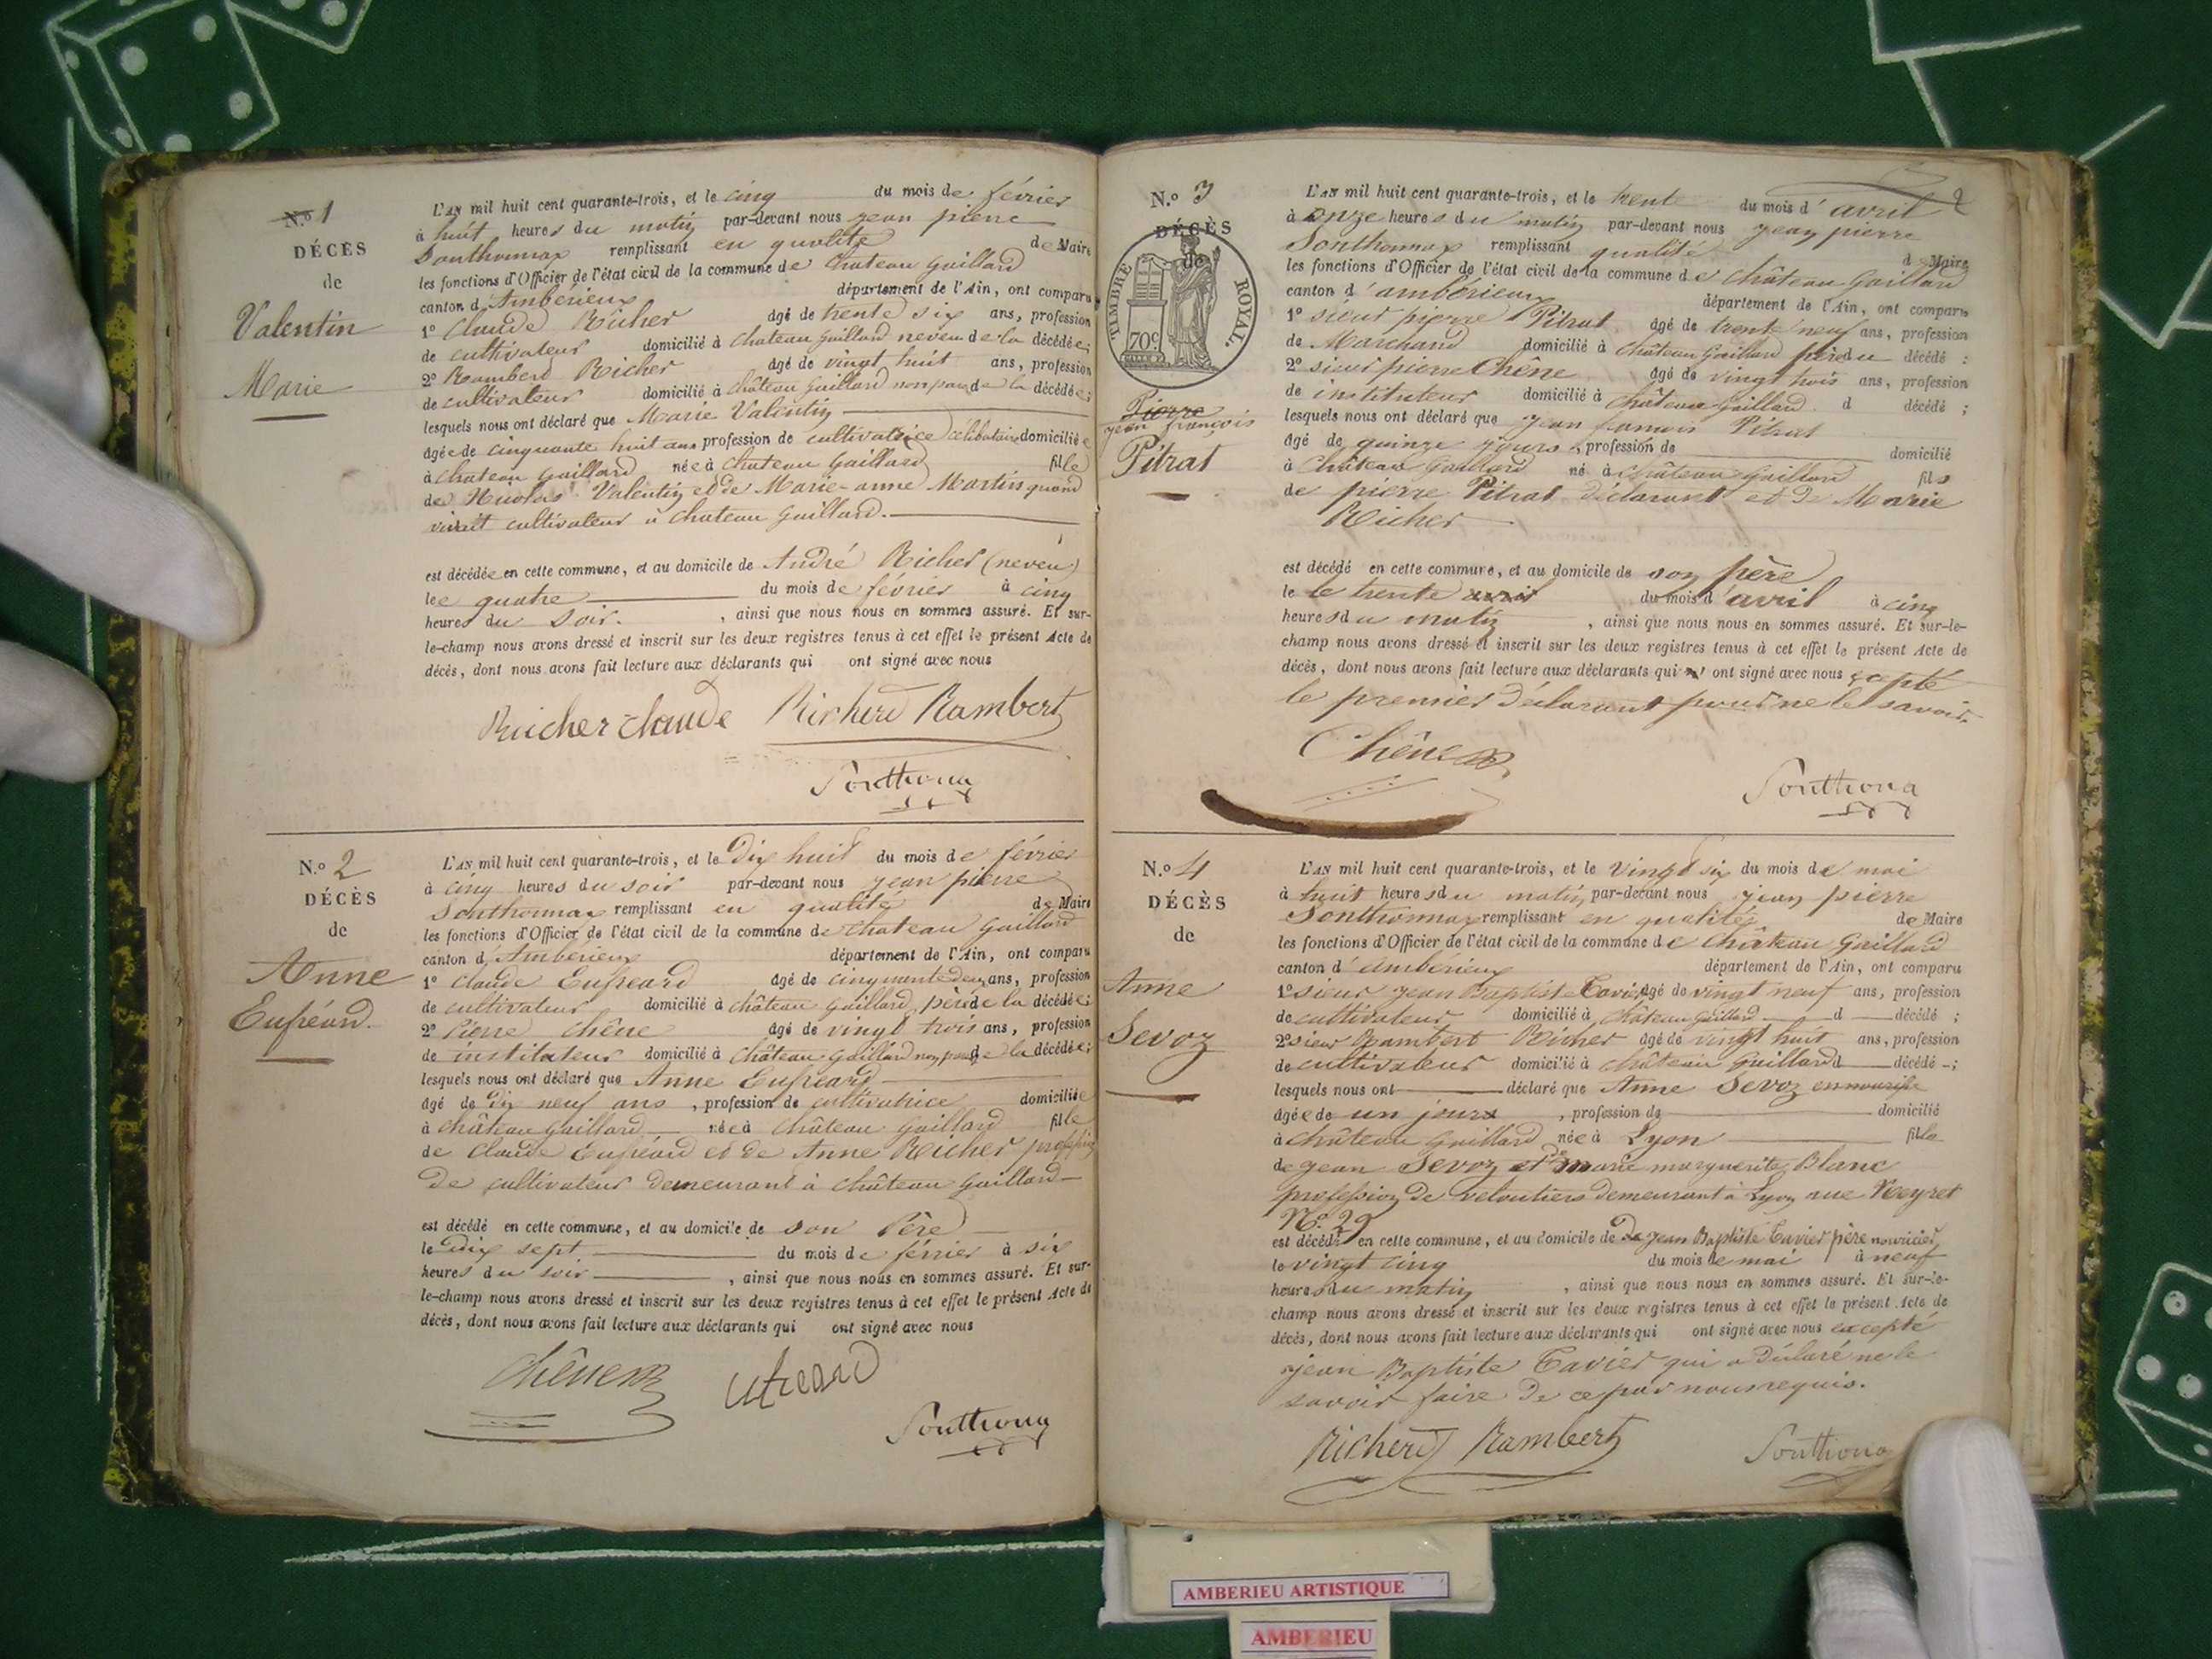 N.º 1
DÉCÈS
de
Valentin
Marie
L'AN mil huit cent quarante-trois, et le cinq du mois de février
à huit heures du matin par-devant nous jean pierre
Southonnax remplissant en qualité de Maire
les fonctions d'Officier de l'état civil de la commune de Chateau Gaillard
canton d'Ambérieux département de l'Ain, ont comparu
1º Claude Richer âgé de trente six ans, profession
de cultivateur domicilié à Chateau Gaillard neveu de la décédée;
2º Rambert Richer âgé de vingt huit ans, profession
de cultivateur domicilié à Château Gaillard non par. de la décédée;
lesquels nous ont déclaré que Marie Valentin
âgée de cinquante huit ans profession de cultivatrice célibataire domiciliée
à Chateau Gaillard née à Chateau Gaillard fille
de Nicolas Valentin et de Marie-anne Martin quand
vivait cultivateur à Chateau Gaillard.
est décédée en cette commune, et au domicile de André Richer (neveu)
le quatre du mois de février à cinq
heures du soir. , ainsi que nous nous en sommes assuré. Et sur-
le-champ nous avons dressé et inscrit sur les deux registres tenus à cet effet le présent Acte de
décès, dont nous avons fait lecture aux déclarants qui ont signé avec nous
Richer claude Richerd Rambert
Southona
N.º 2
DÉCÈS
de
Anne
Eupéard.
L'AN mil huit cent quarante-trois, et le Dix huit du mois de février
à cinq heures du soir par-devant nous jean pierre
Southonnax remplissant en qualité de Maire
les fonctions d'Officier de l'état civil de la commune de Chateau Gaillard
canton d'Ambérieux département de l'Ain, ont comparu
1º Claude Eupéard âgé de cinquante deux ans, profession
de cultivateur domicilié à château Gaillard, père de la décédée;
2º Pierre Chêne âgé de vingt trois ans, profession
de instituteur domicilié à Château Gaillard non par. de la décédée;
lesquels nous ont déclaré que Anne Eupéard
âgé de dix neuf ans , profession de cultivatrice domiciliée
à château Gaillard née à Château gaillard fille
de Claude Eupéard et de Anne Richer profession
de cultivateur demeurant à Château Gaillard
est décédé en cette commune, et au domicile de son Père
le Dix sept du mois de février à six
heures du soir , ainsi que nous nous en sommes assuré. Et sur-
le-champ nous avons dressé et inscrit sur les deux registres tenus à cet effet le présent Acte de
décès, dont nous avons fait lecture aux déclarants qui ont signé avec nous
Chêne
Southona
2
N.º 3
DÉCÈS
de
TIMBRE ROYAL.
70c
Pierre
jean françois
Pitrat
L'AN mil huit cent quarante-trois, et le trente du mois d'avril
à onze heures du matin par-devant nous jean pierre
Southonnax remplissant qualité de Maire
les fonctions d'Officier de l'état civil de la commune de Château Gaillard
canton d'ambérieux département de l'Ain, ont comparu
1º sieur pierre Pitrat âgé de trente neuf ans, profession
de Marchand domicilié à Château Gaillard père du décédé :
2º sieur pierre Chêne âgé de vingt trois ans, profession
de instituteur domicilié à Château Gaillard. d décédé ;
lesquels nous ont déclaré que jean francois Pitrat
âgé de quinze jours , profession de domicilié
à Château Gaillard né à Château Gaillard fils
de pierre Pitrat déclarant et de Marie
Richer
est décédé en cette commune, et au domicile de son père
le le trente avril du mois d'avril à cinq
heures du matin , ainsi que nous nous en sommes assuré. Et sur-le-
champ nous avons dressé et inscrit sur les deux registres tenus à cet effet le présent Acte de
décès, dont nous avons fait lecture aux déclarants qui n' ont signé avec nous excepté
le premier déclarant pour ne le savoir.
Chêne
Southona
N.º 4
DÉCÈS
de
Anne
Sevoz
L'AN mil huit cent quarante-trois, et le Vingt six du mois de mai
à huit heures du matin par-devant nous jean pierre
Southonnax remplissant en qualité de Maire
les fonctions d'Officier de l'état civil de la commune de Château Gaillard
canton d'Ambérieux département de l'Ain, ont comparu
1º sieur jean Baptiste Tavier âgé de vingt neuf ans, profession
de cultivateur domicilié à Château Gaillard d décédé ;
2º sieur Rambert Richer âgé de vingt huit ans, profession
de cultivateur domicilié à château Gaillard d décédé ;
lesquels nous ont déclaré que Anne Sevoz en nourice
âgée de un jours , profession de domicilié
à Château Gaillard née à Lyon fille
de jean Sevoz et de marie marguerite Blanc
profession de veloutiers demeurant à Lyon rue Neyret
Nº 29
est décédé en cette commune, et au domicile de De jean Baptiste Tavier père nouricier
le vingt cinq du mois de mai à neuf
heures du matin , ainsi que nous nous en sommes assuré. Et sur-le-
champ nous avons dressé et inscrit sur les deux registres tenus à cet effet le présent Acte de
décès, dont nous avons fait lecture aux déclarants qui ont signé avec nous excepté
jean Baptiste Tavier qui a déclaré ne le
savoir faire de ce par nous requis.
Richerd Rambert Southona
AMBERIEU ARTISTIQUE
AMBERIEU